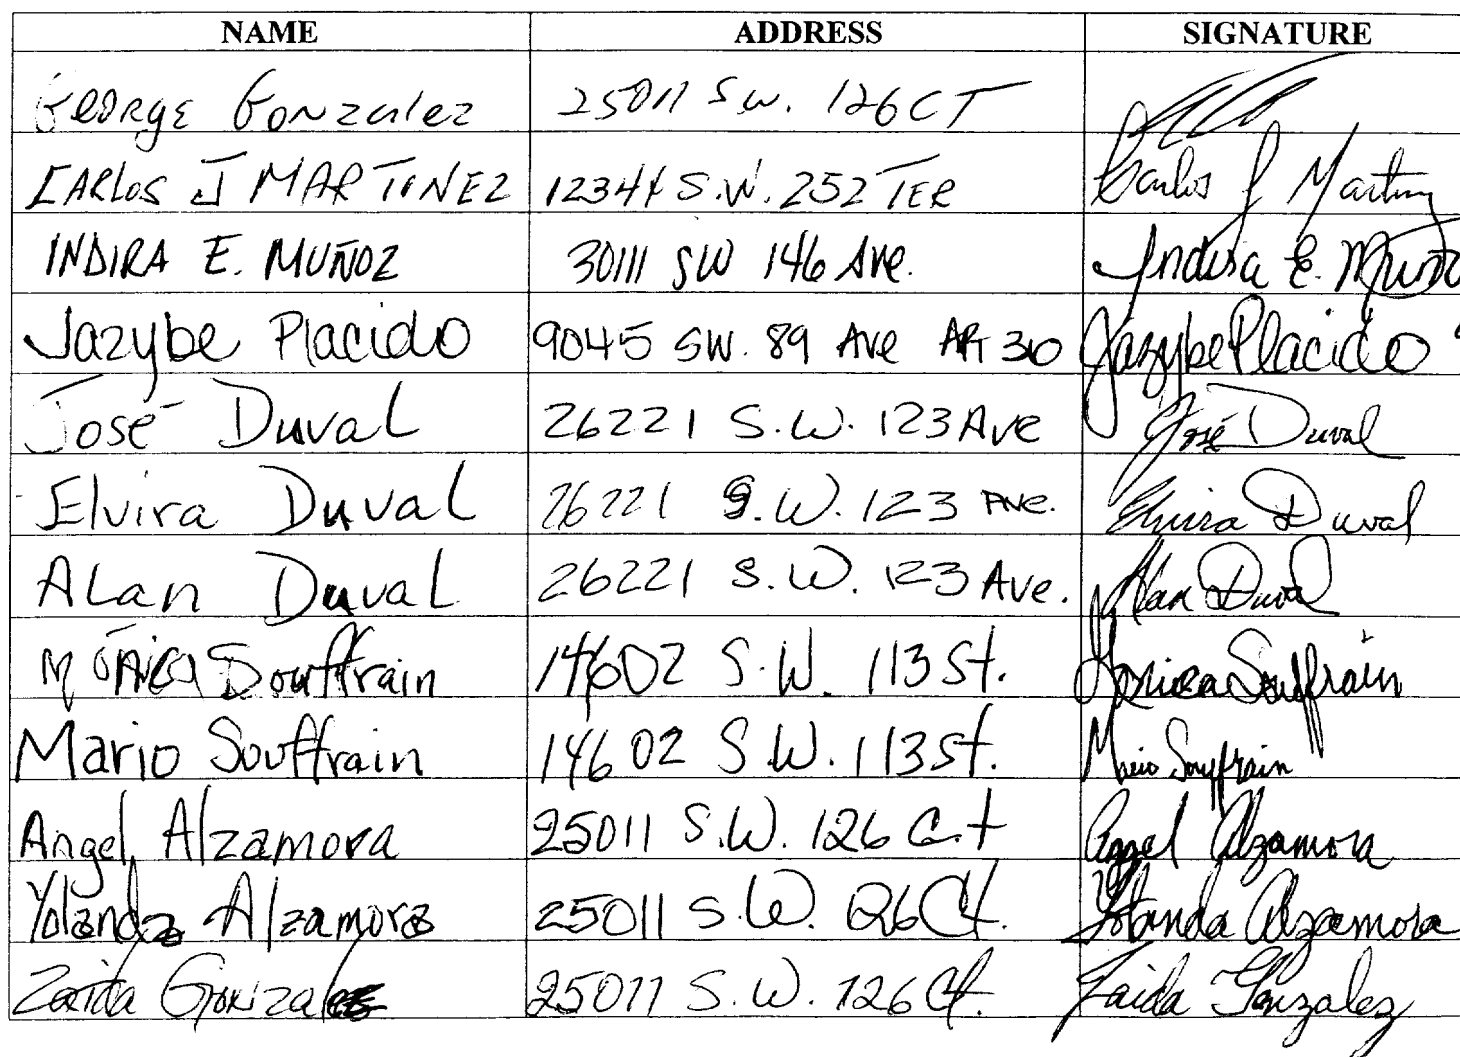 NAME ADDRESS SIGNATURE
George Gonzalez 25011 S.W. 126 CT
CARLOS J MARTINEZ 12344 S.W. 252 TER Carlos J Martinez
INDIRA E. MUÑOZ 30111 SW 146 Ave. Indira E. Muñoz
Jazybe Placido 9045 SW. 89 Ave APT 310 Jazybe Placido
José Duval 26221 S.W. 123 Ave José Duval
Elvira Duval 26221 S.W. 123 Ave. Elvira Duval
ALan Duval 26221 S.W. 123 Ave. Alan Duval
Mónica Souffrain 14602 S.W. 113 St. Monica Souffrain
Mario Souffrain 14602 S.W. 113 St. Mario Souffrain
Angel Alzamora 25011 S.W. 126 C.t Angel Alzamora
Yolanda Alzamora 25011 S.W. 126 Ct. Yolanda Alzamora
Zaida Gonzalez 25011 S.W. 126 Ct. Zaida Gonzalez